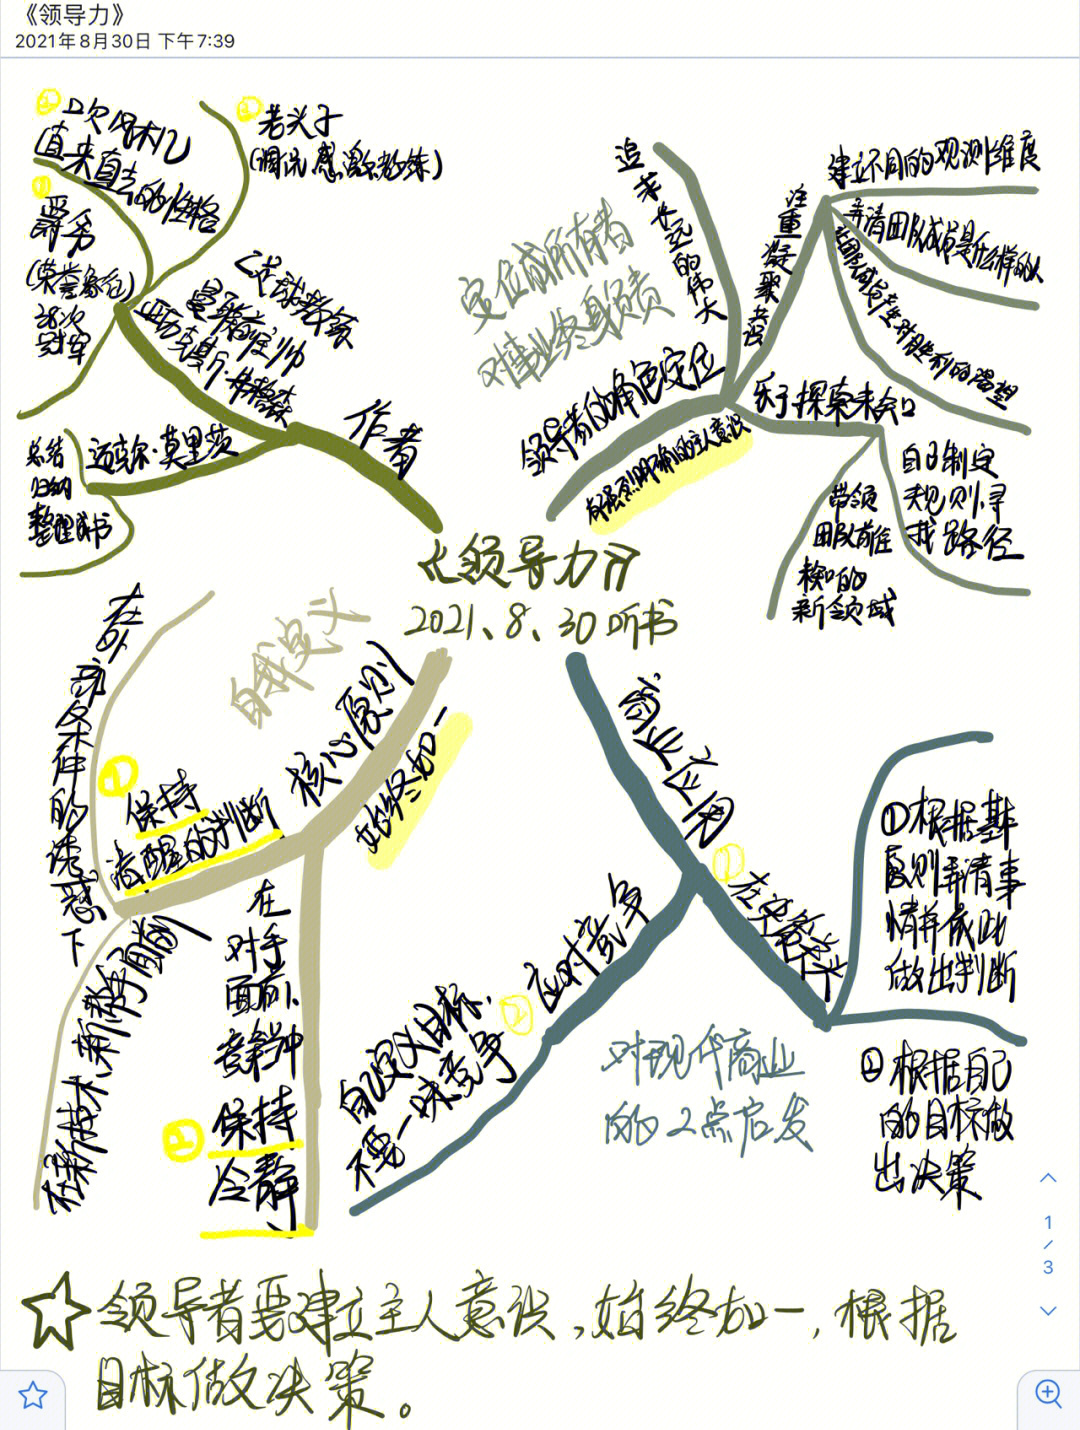 《领导力》
2021年8月30日 下午7:39
②
吹风机
直来直去的性格
③
老头子
①
爵务
(荣誉象征)
38次
冠军
足球教练
曼联前主帅
亚历克斯·弗格森
作者
迈克尔·莫里茨
总结
归纳
整理成书
定位成所有者
对事业终身负责
追求长远的伟大
注重凝聚共识
建立不同的观测维度
弄清团队成员是什么样的人
乐于探索未知
自己制定
规则,寻
找路径
带领
团队前往
新领域
领导者的角色定位
有强烈明确的主人意识
《领导力》
2021、8、30 听书
自我定义
核心原则
始终如一
①
保持
清醒的判断
在外部条件的诱惑下
在新技术、新数字面前
在
对手
面前、
②
保持
冷静
商业应用
①
在决策当中
①根据基本
原则弄清事
情并依此
做出判断
②根据自己
的目标做
出决策
②
应对竞争
自己定义目标,
不要一味竞争
对现代商业
的2点启发
1
/
3
☆领导者要建立主人意识,始终如一,根据
目标做决策。